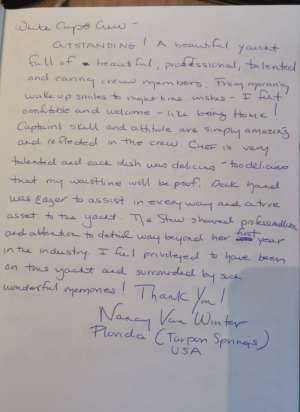 White Caps Crew -
OUTSTANDING! A beautiful yacht
full of beautiful, professional, talented
and caring crew members. From morning
wake up smiles to night time wishes - I felt
comfortable and welcome - like being Home!
Captain's skill and attitude are simply amazing
and reflected in the crew. Chef is very
talented and each dish was delicious - too delicious
that my waistline will be proof. Deck hand
was eager to assist in every way and a true
asset to the yacht. The Stew showed professionalism
and attention to detail way beyond her first year
in the industry. I feel privileged to have been
on this yacht and surrounded by such
wonderful memories! Thank You!
Nancy Van Winter
Florida (Tarpon Springs)
USA